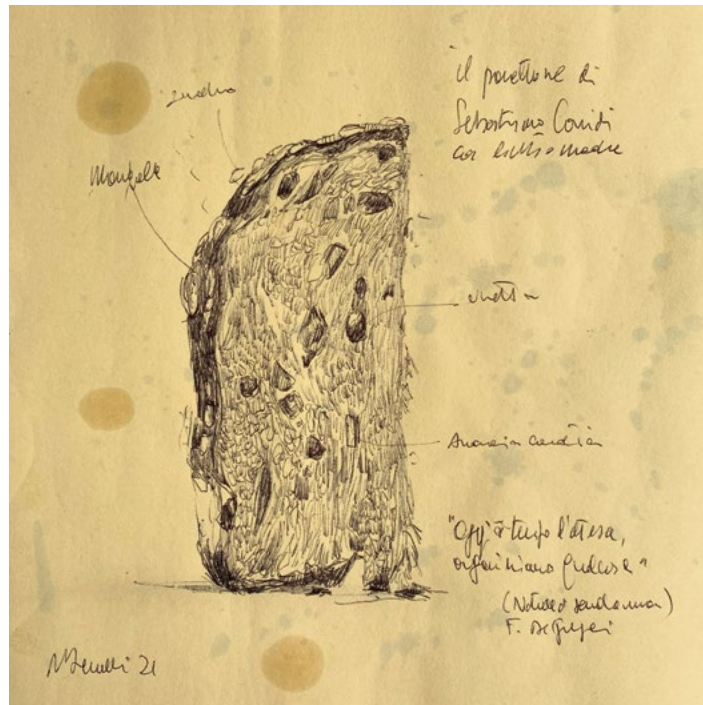 il panettone di
Sebastiano Caridi
con lievito madre
zucchero
Mandorle
uvetta
Arancia candita
"Oggi è tempo d'attesa,
organizziamo qualcosa"
(Natale
F. De Gregori
21